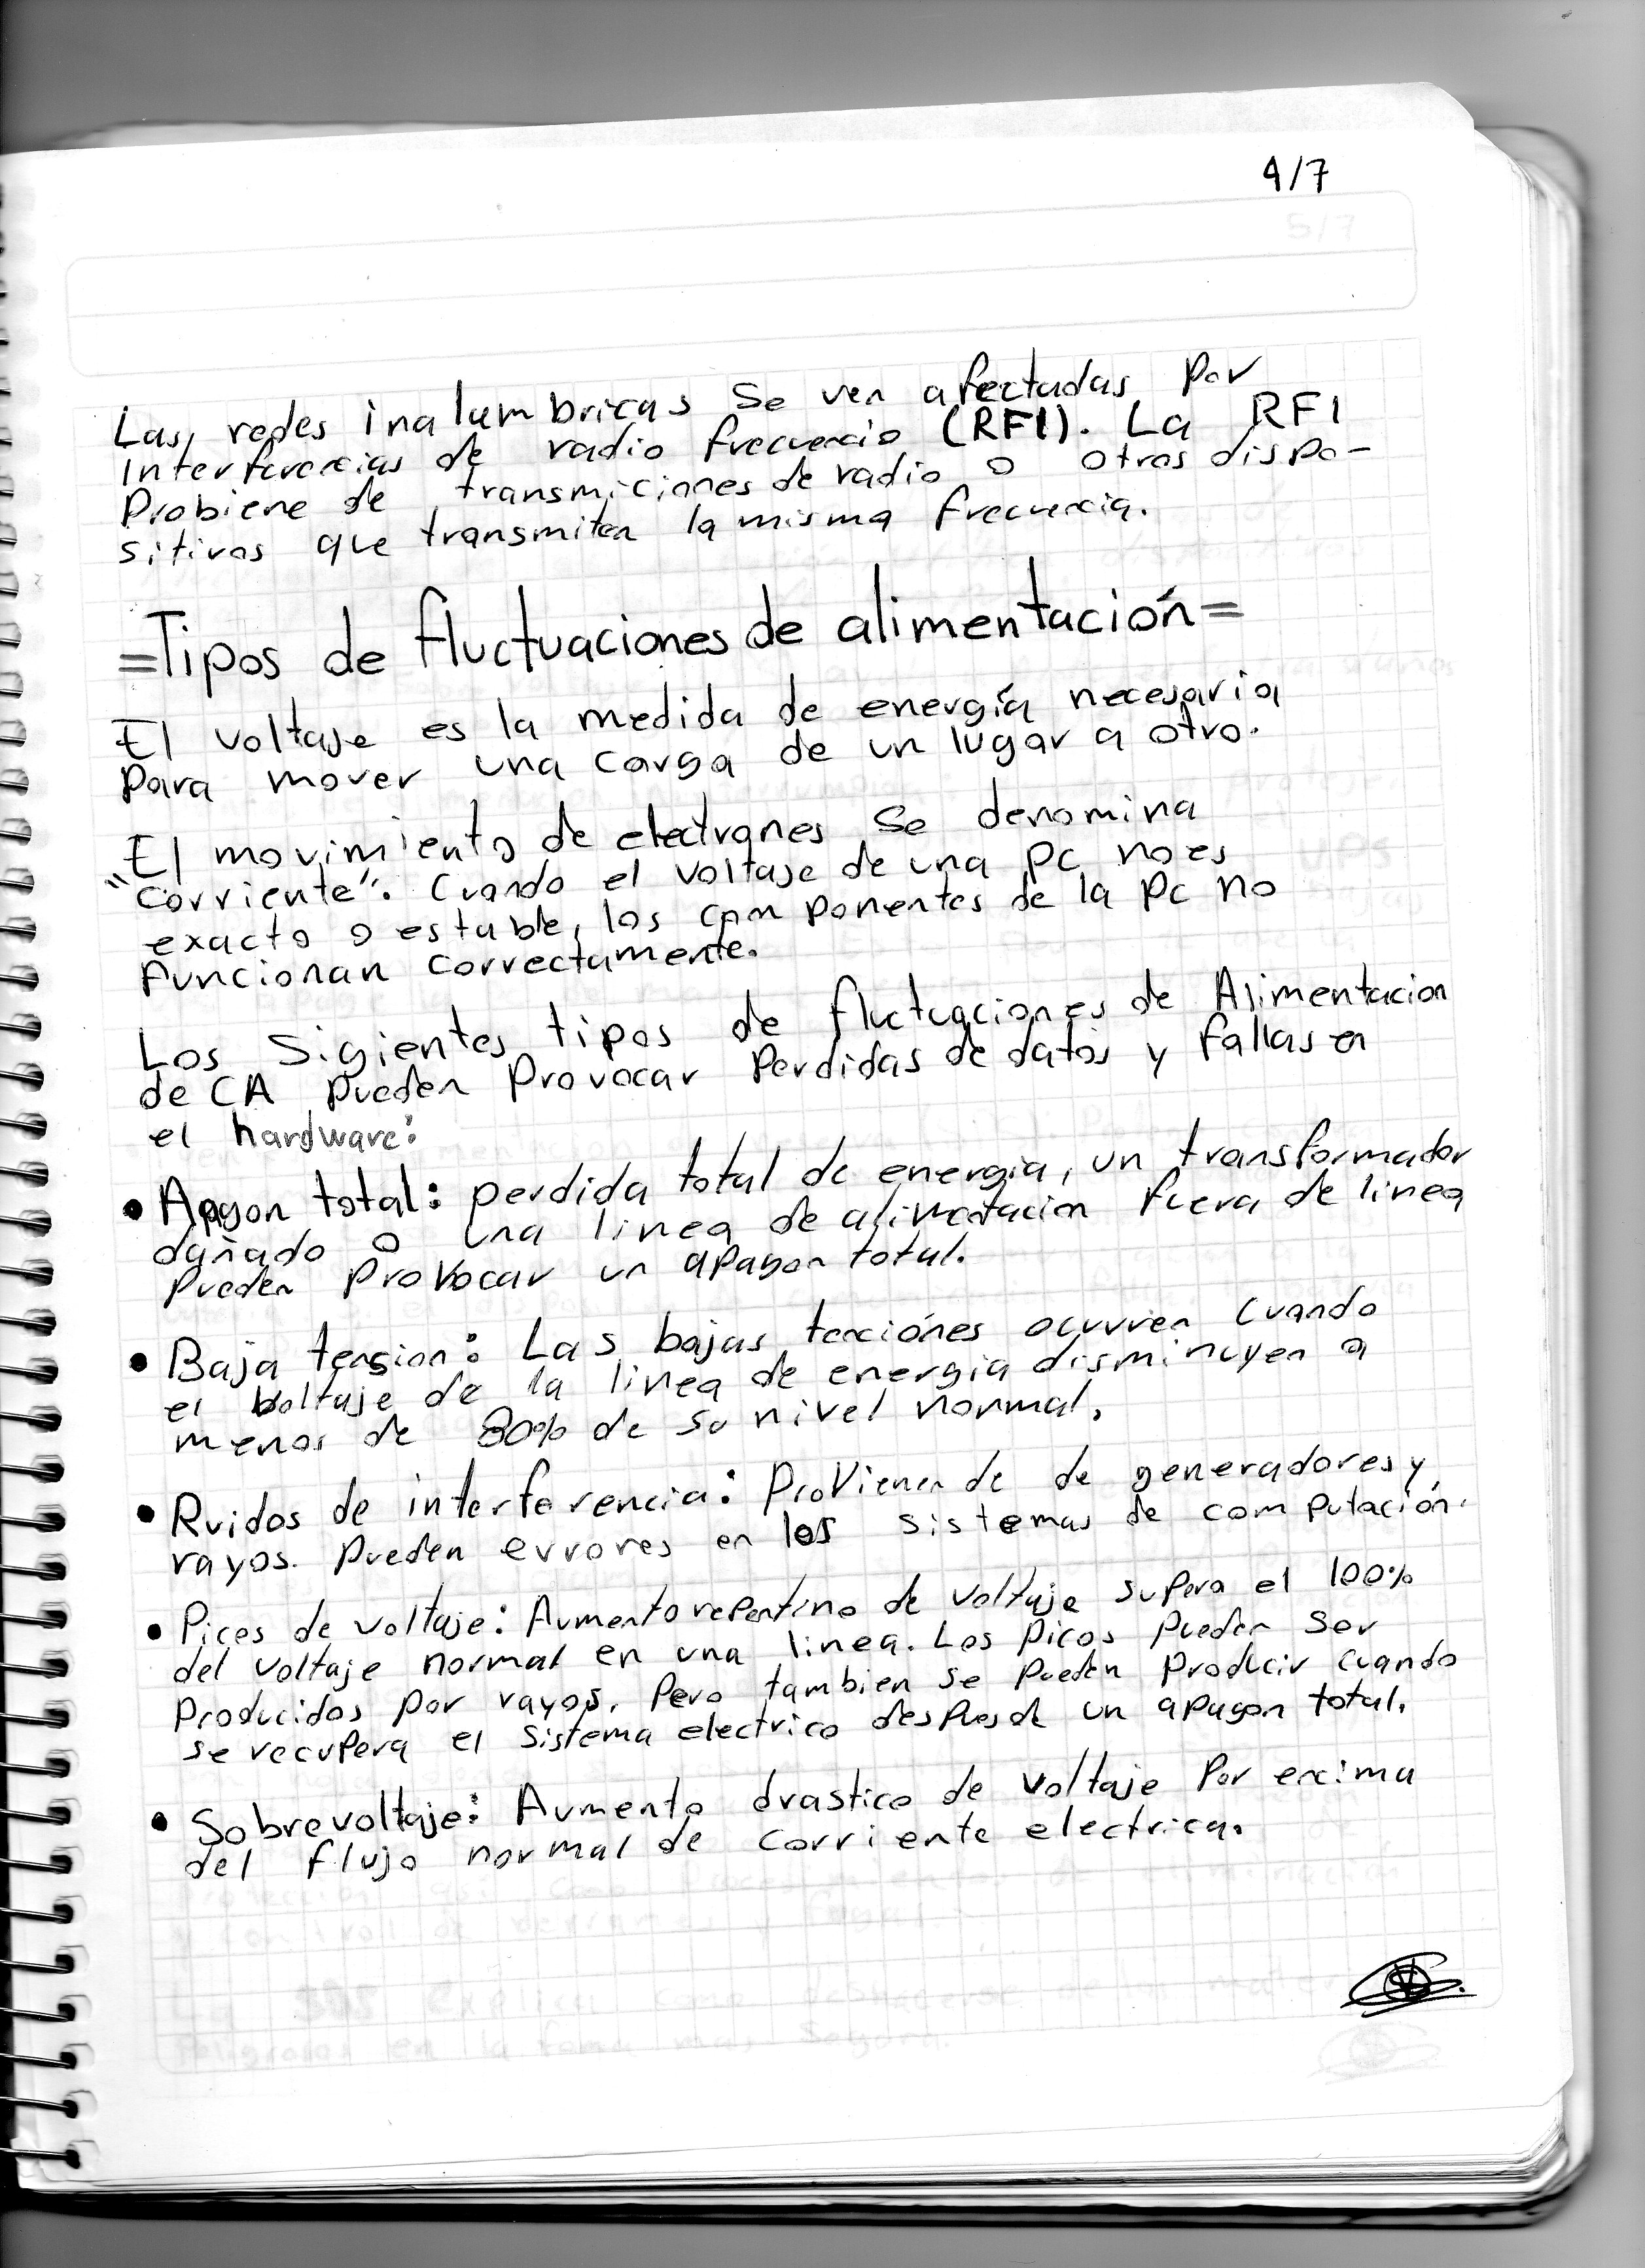 4/7
Las redes inalumbricas se ven afectadas por
Interferencias de radio frecuencia (RFI). La RFI
Probiene de transmiciones de radio o otros dispo-
sitivos que transmiten la misma frecuencia.
=Tipos de fluctuaciones de alimentación=
El voltaje es la medida de energía necesaria
para mover una carga de un lugar a otro.
El movimiento de electrones se denomina
"corriente". Cuando el voltaje de una pc no es
exacto o estable, los componentes de la pc no
funcionan correctamente.
Los Sigientes tipos de fluctuaciones de Alimentacion
de CA pueden provocar perdidas de datos y fallas en
el hardware:
• Apagon total: perdida total de energia, un transformador
dañado o una linea de alimentacion fuera de linea
pueden provocar un apagon total.
• Baja tension: Las bajas tenciónes ocurren cuando
el voltaje de la linea de energia disminuyen a
menos de 80% de su nivel normal.
• Ruidos de interferencia: Provienen de de generadores y
rayos. Pueden errores en los sistemas de computación.
• Picos de voltaje: Aumento repentino de voltaje supera el 100%
del voltaje normal en una linea. Los picos pueden ser
producidos por rayos, Pero tambien se pueden producir cuando
se recupera el sistema electrico despues de un apagon total.
• Sobrevoltaje: Aumento drastico de voltaje por encima
del flujo normal de corriente electrica.